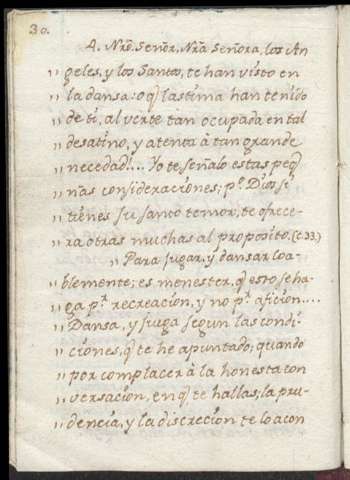 30.
4. Nrõ. Señor, Nrã Señora, los An
" geles, y los Santos, te han visto en
" la dansa: o q̃ lastima han tenido
" de ti, al verte tan ocupada en tal
" desatino, y atenta à tan grande
" necedad!... Yo te señalo estas peq̃
" ñas consideraciones; p.r Dios si
" tienes su santo temor, te ofrece-
" ra otras muchas al proposito. (c. 33.)
" Para jugar, y dansar loa-
" blemente; es menester, q̃ esto se ha-
" ga p.r recreacion, y no p.r aficion....
" Dansa, y juega segun las condi-
" ciones, q̃ te he apuntado; quando
" por complacer à la honesta con
" versacion, en q̃ te hallas; la pru-
" dencia, y la discrecion te lo acon